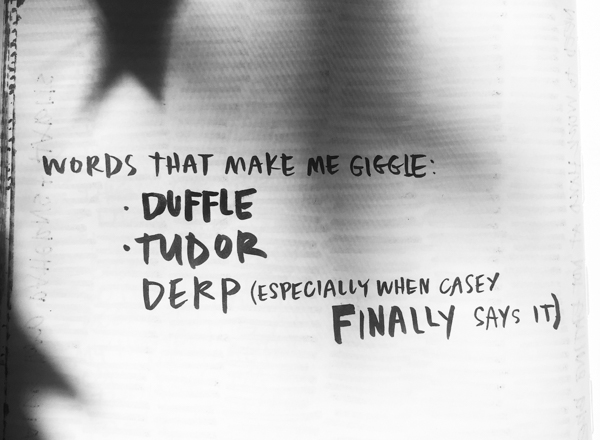 WORDS THAT MAKE ME GIGGLE:
· DUFFLE
· TUDOR
DERP (ESPECIALLY WHEN CASEY
FINALLY SAYS IT)